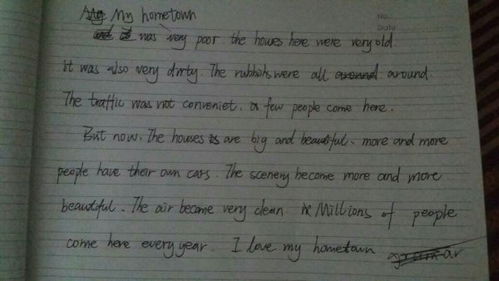 My hometown
No.
Date
was very poor. the houses here were very old.
It was also very dirty. The rubbish were all around.
The traffic was not conveniet. a few people come here.
But now. The houses are big and beautiful. more and more
people have their own cars. The scenery become more and more
beautiful. The air became very clean Millions of people
come here every year. I love my hometown